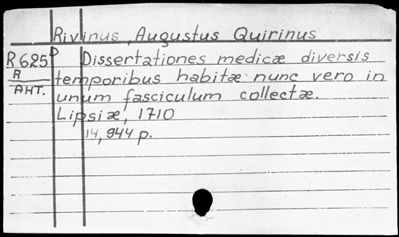 Rivinus, Augustus Quirinus
R625P Dissertationes medicæ diversis
A temporibus habitæ nunc vero in
АНТ. unum fasciculum collectæ.
Lipsiæ, 1710
14, 944 p.